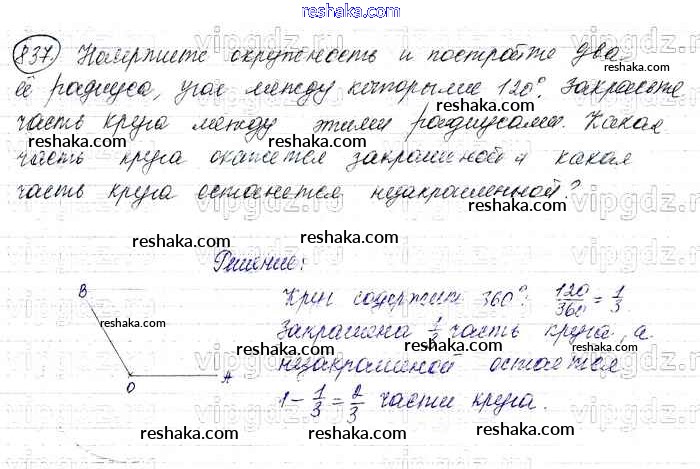 reshaka.com
837. Начертите окружность и постройте два
её радиуса, угол между которыми 120°. Закрасьте
reshaka.com reshaka.com reshaka.com
часть круга между этими радиусами. Какая
часть круга окажется закрашенной и какая
reshaka.com reshaka.com reshaka.com
часть круга останется незакрашенной?
reshaka.com reshaka.com reshaka.com
Решение:
B
Круг содержит 360°: 120/360 = 1/3
reshaka.com reshaka.com reshaka.com
Закрашена часть круга, а
незакрашенной остаётся
O A
reshaka.com reshaka.com
1 - 1/3 = 2/3 части круга.
reshaka.com reshaka.com reshaka.com
vipgdz.ru